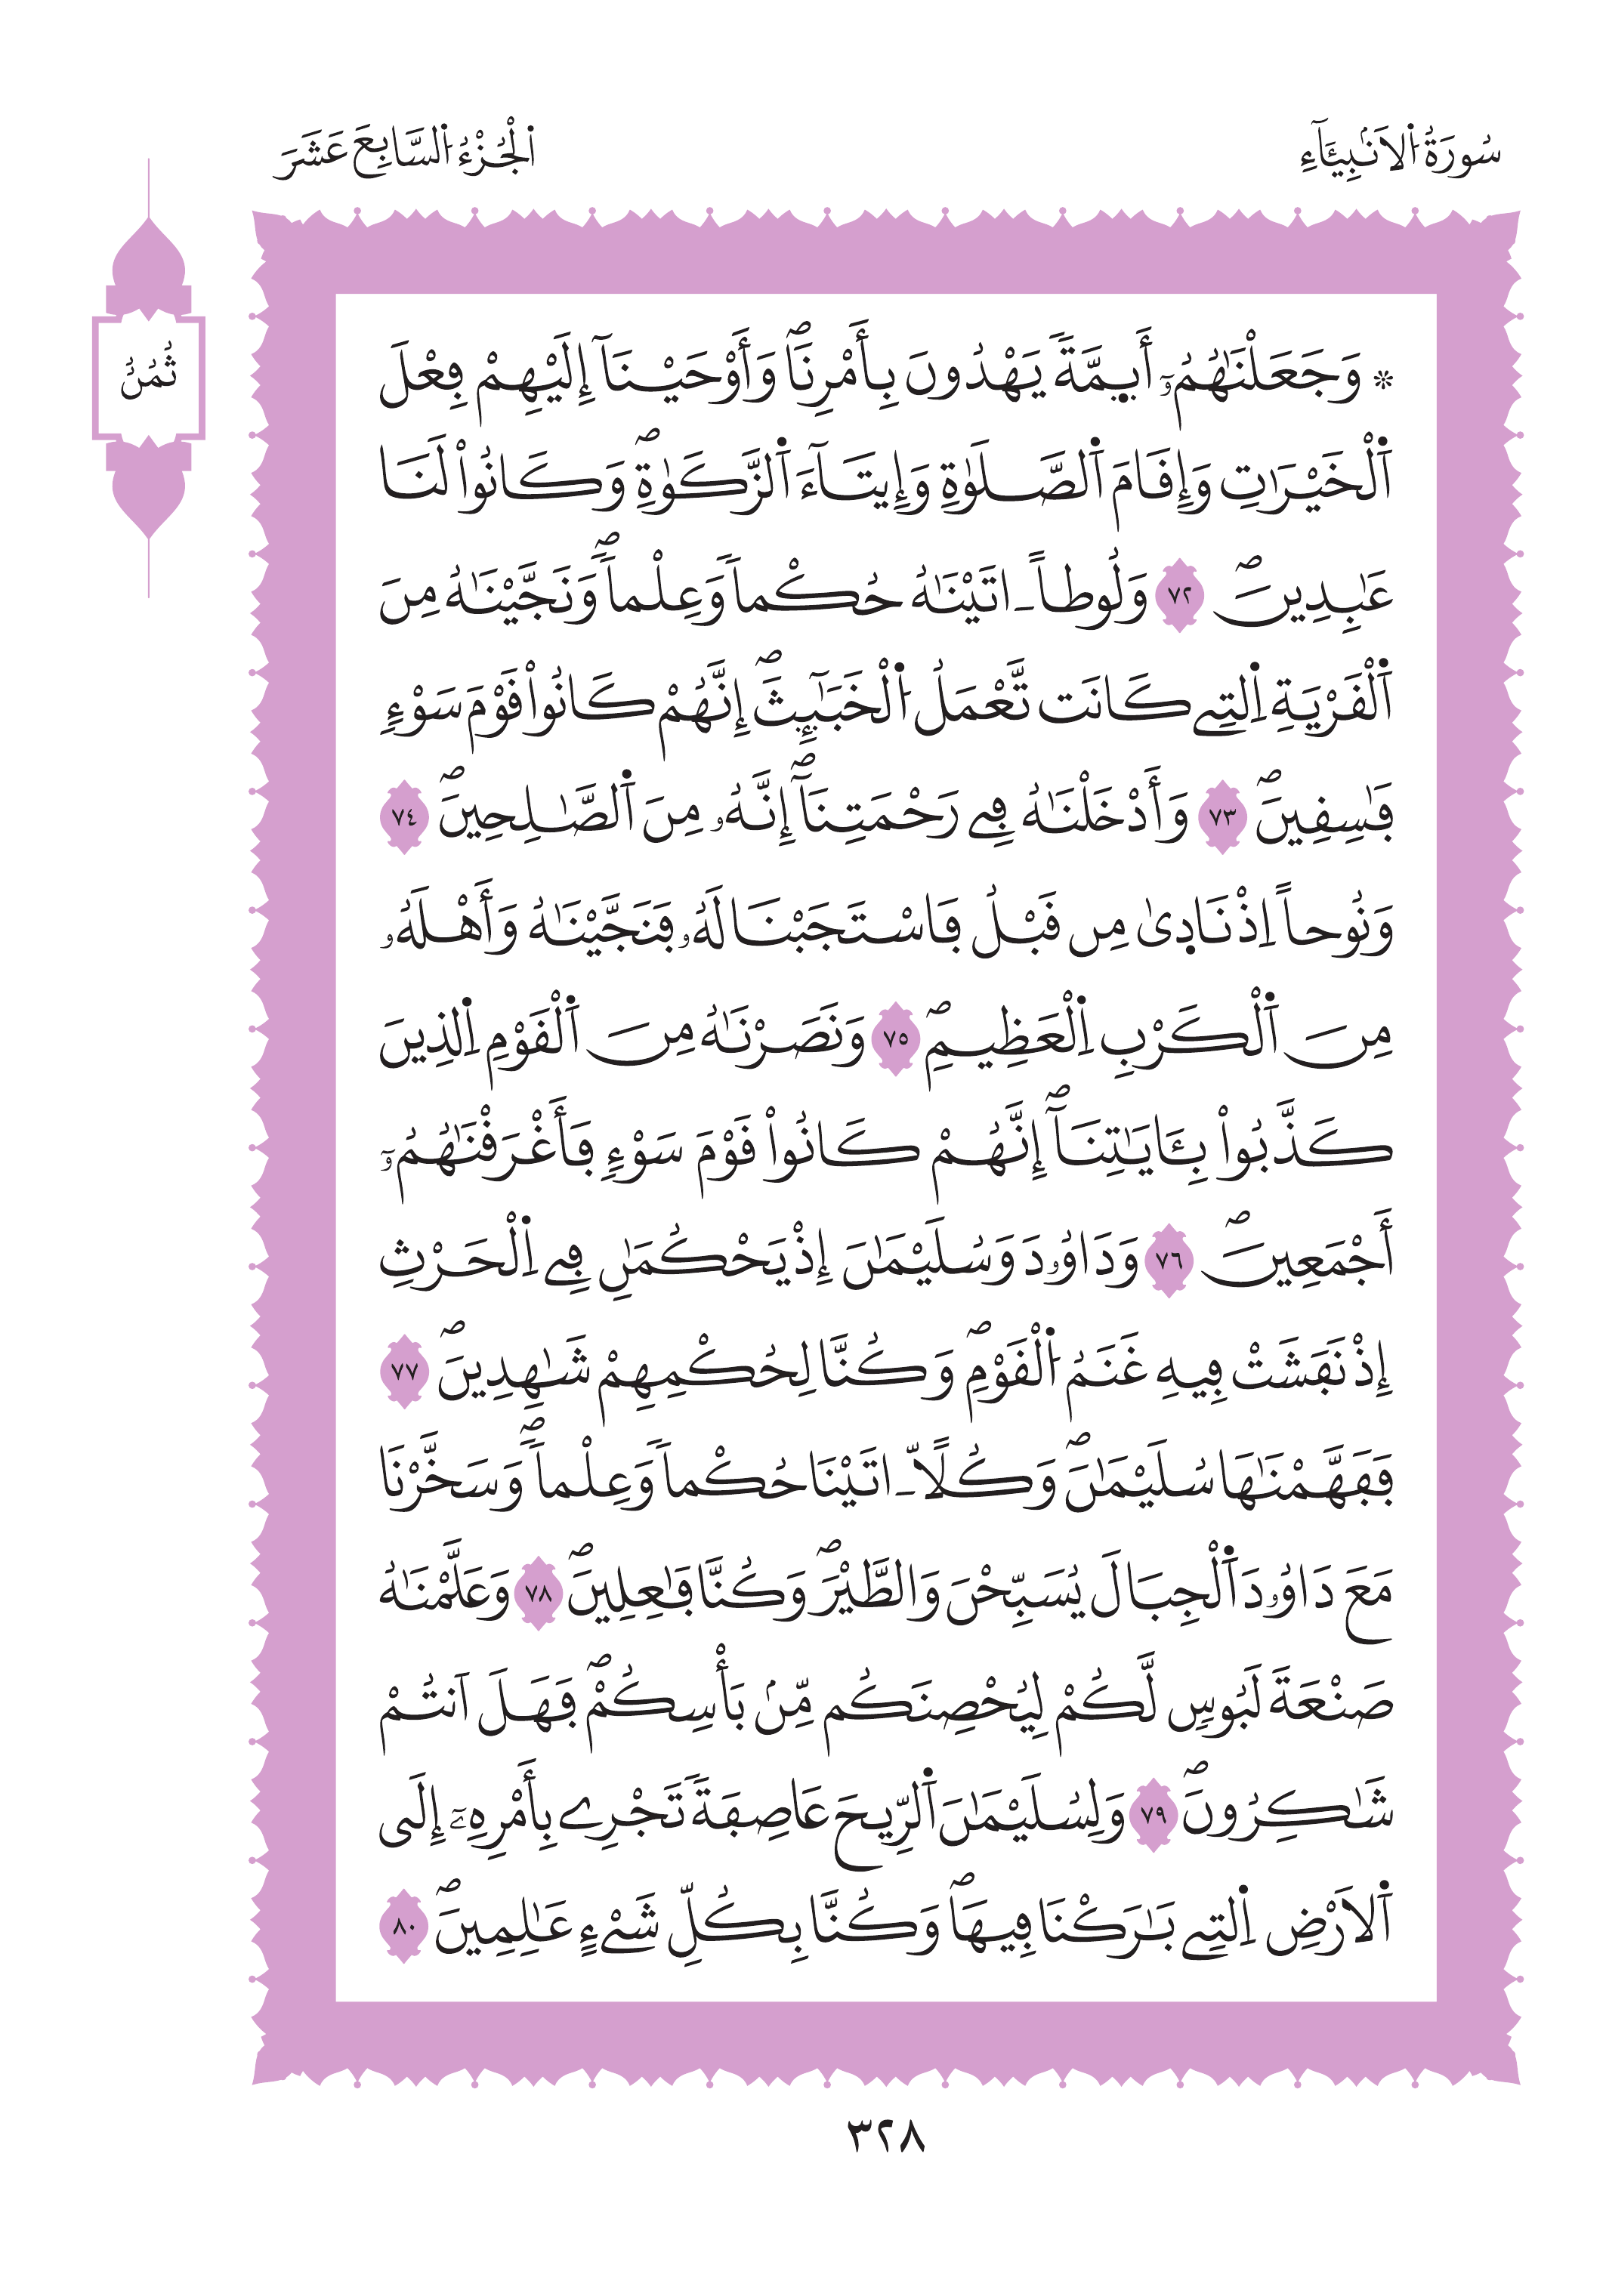 سُورَةُ اُ۬لَانۢبِيَآءِ
اَ۬لْجُزْءُ اُ۬لسَّابِعَ عَشَرَ
ثُمُنُ
* وَجَعَلْنَٰهُمُۥٓ أَيِمَّةٗ يَهْدُونَ بِأَمْرِنَاۖ وَأَوْحَيْنَآ إِلَيْهِمْ فِعْلَ
اَ۬لْخَيْرَٰتِ وَإِقَامَ اَ۬لصَّلَوٰةِ وَإِيتَآءَ اَ۬لزَّكَوٰةِۖ وَكَانُواْ لَنَا
عَٰبِدِينَۖ ٧٢ وَلُوطاً ـ اتَيْنَٰهُ حُكْماٗ وَعِلْماٗۖ وَنَجَّيْنَٰهُ مِنَ
اَ۬لْقَرْيَةِ اِ۬لتِے كَانَت تَّعْمَلُ اُ۬لْخَبَٰٓئِثَۖ إِنَّهُمْ كَانُواْ قَوْمَ سَوْءٖ
فَٰسِقِينَۖ ٧٣ وَأَدْخَلْنَٰهُ فِے رَحْمَتِنَآۖ إِنَّهُۥ مِنَ اَ۬لصَّٰلِحِينَۖ ٧٤
وَنُوحاً اِذْ نَادٜىٰ مِن قَبْلُ فَاسْتَجَبْنَا لَهُۥ فَنَجَّيْنَٰهُ وَأَهْلَهُۥ
مِنَ اَ۬لْكَرْبِ اِ۬لْعَظِيمِۖ ٧٥ وَنَصَرْنَٰهُ مِنَ اَ۬لْقَوْمِ اِ۬لذِينَ
كَذَّبُواْ بِـَٔايَٰتِنَآۖ إِنَّهُمْ كَانُواْ قَوْمَ سَوْءٖ فَأَغْرَقْنَٰهُمُۥٓ
أَجْمَعِينَۖ ٧٦ وَدَاوُۥدَ وَسُلَيْمَٰنَ إِذْ يَحْكُمَٰنِ فِے اِ۬لْحَرْثِ
إِذْ نَفَشَتْ فِيهِ غَنَمُ اُ۬لْقَوْمِۖ وَكُنَّا لِحُكْمِهِمْ شَٰهِدِينَۖ ٧٧
فَفَهَّمْنَٰهَا سُلَيْمَٰنَۖ وَكُلّاً ـ اتَيْنَا حُكْماٗ وَعِلْماٗۖ وَسَخَّرْنَا
مَعَ دَاوُۥدَ اَ۬لْجِبَالَ يُسَبِّحْنَ وَالطَّيْرَۖ وَكُنَّا فَٰعِلِينَۖ ٧٨ وَعَلَّمْنَٰهُ
صَنْعَةَ لَبُوسٖ لَّكُمْ لِيُحْصِنَكُم مِّنۢ بَأْسِكُمْۖ فَهَلَ اَنتُمْ
شَٰكِرُونَۖ ٧٩ وَلِسُلَيْمَٰنَ اَ۬لرِّيحَ عَاصِفَةٗ تَجْرِے بِأَمْرِهِۦٓ إِلَى
اَ۬لَارْضِ اِ۬لتِے بَٰرَكْنَا فِيهَاۖ وَكُنَّا بِكُلِّ شَےْءٍ عَٰلِمِينَۖ ٨٠
٣٢٨